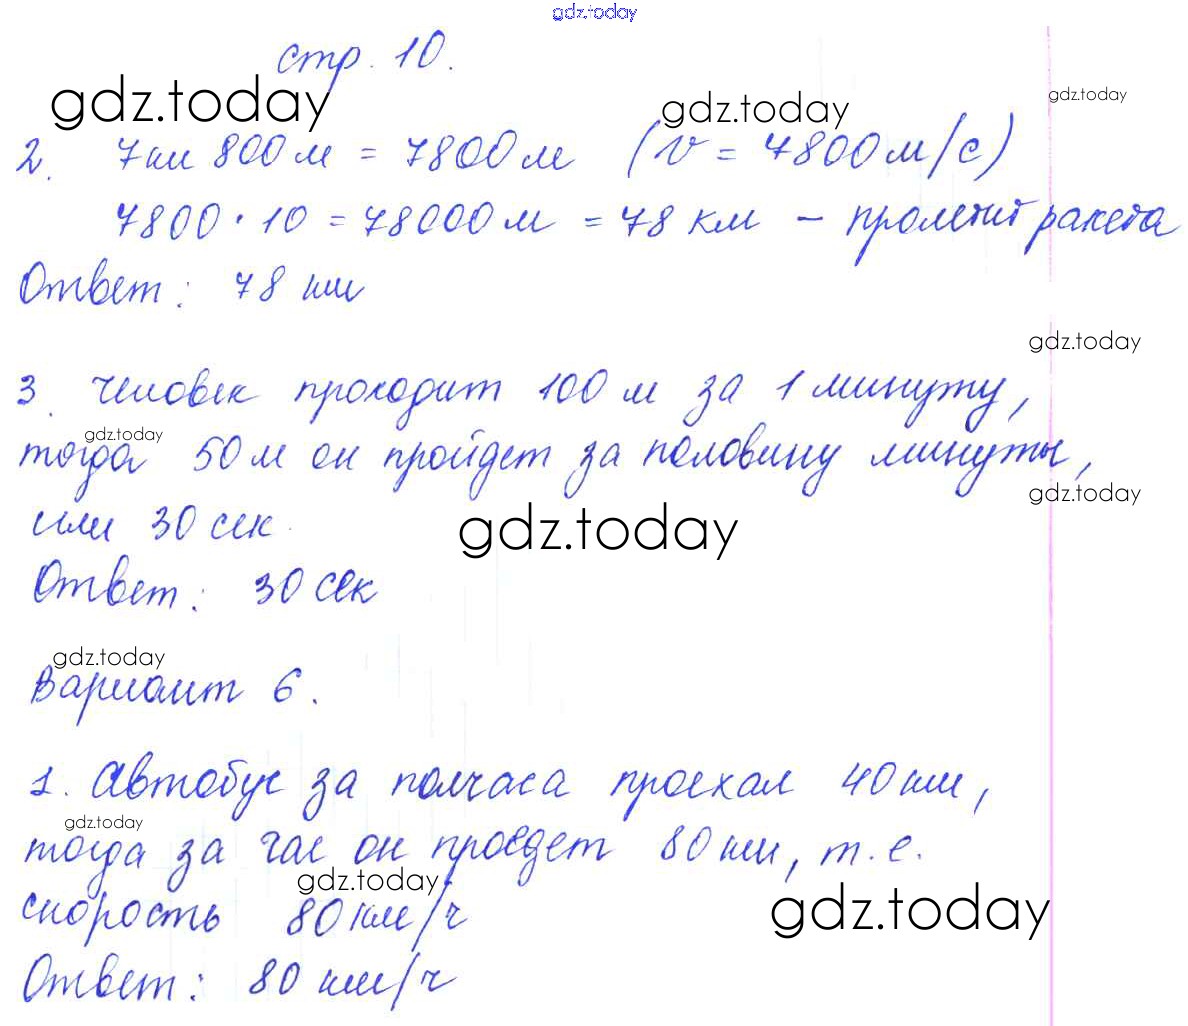 gdz.today
стр. 10.
gdz.today gdz.today gdz.today
2. 7км 800м = 7800м (v = 7800м/с)
7800 · 10 = 78000м = 78 км – пролетит ракета
Ответ: 78 км
gdz.today
3. Человек проходит 100 м за 1 минуту,
gdz.today
тогда 50м он пройдет за половину минуты,
gdz.today
или 30 сек.
gdz.today
Ответ: 30 сек
gdz.today
Вариант 6.
1. Автобус за полчаса проехал 40км,
gdz.today
тогда за час он проедет 80км, т.е.
gdz.today
скорость 80км/ч
gdz.today
Ответ: 80 км/ч